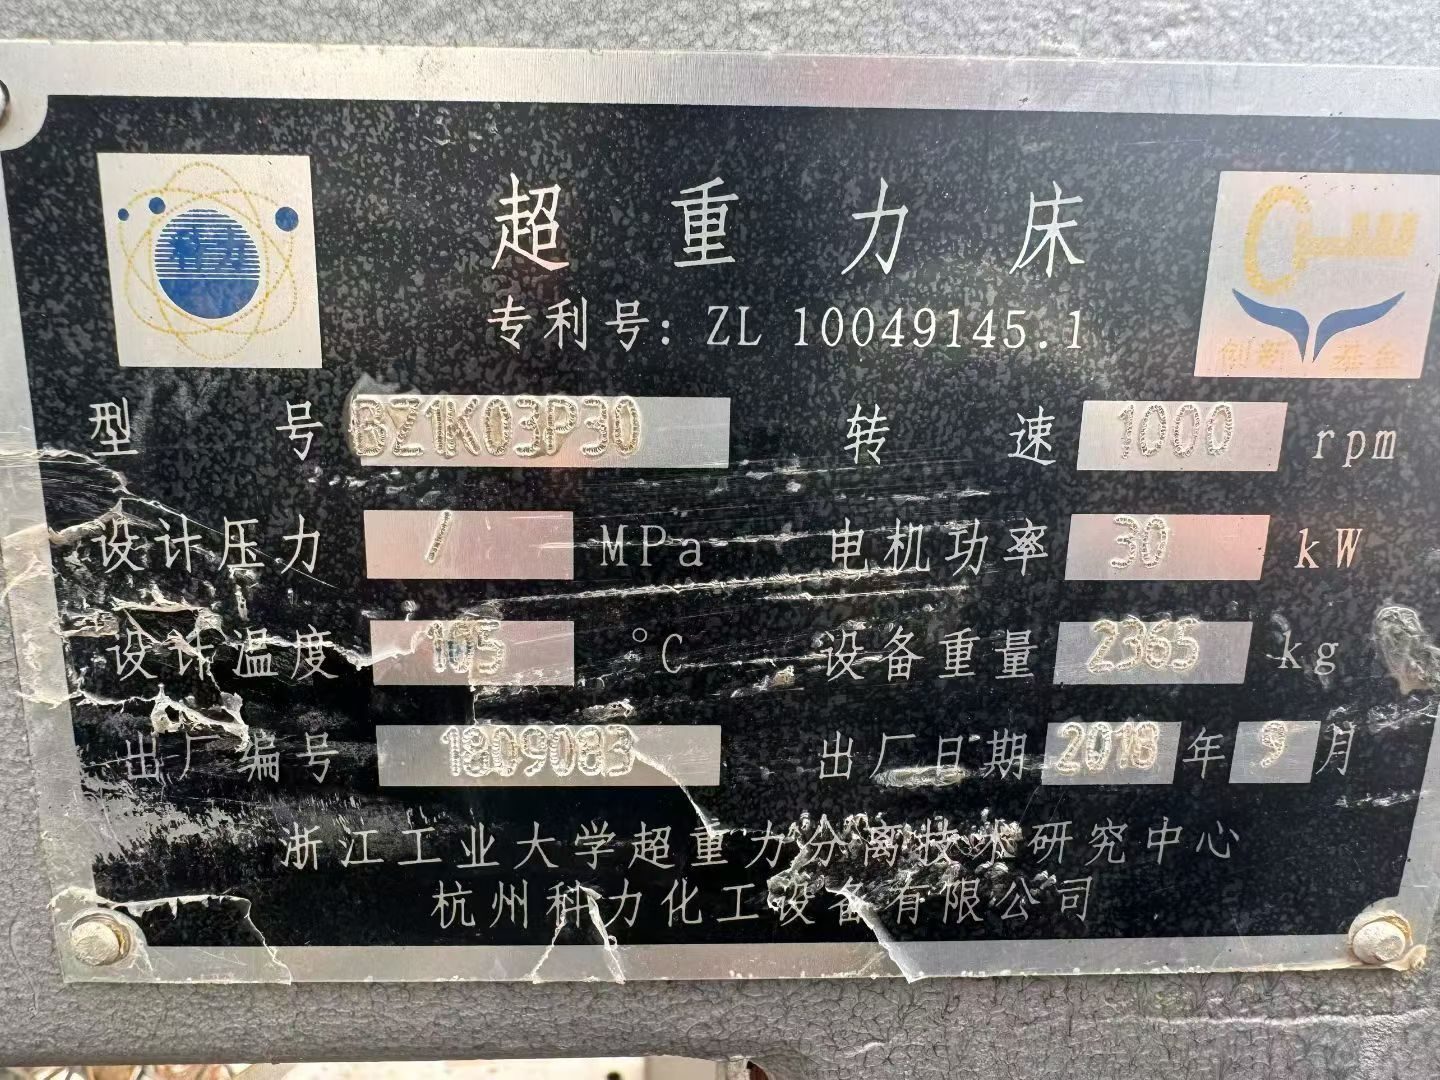 科力
超重力床
专利号: ZL 10049145.1
创新基金
型号 BZ1K03P30 转速 1000 rpm
设计压力 / MPa 电机功率 30 kW
设计温度 105 °C 设备重量 2365 kg
出厂编号 1809083 出厂日期 2018 年 9 月
浙江工业大学超重力分离技术研究中心
杭州科力化工设备有限公司